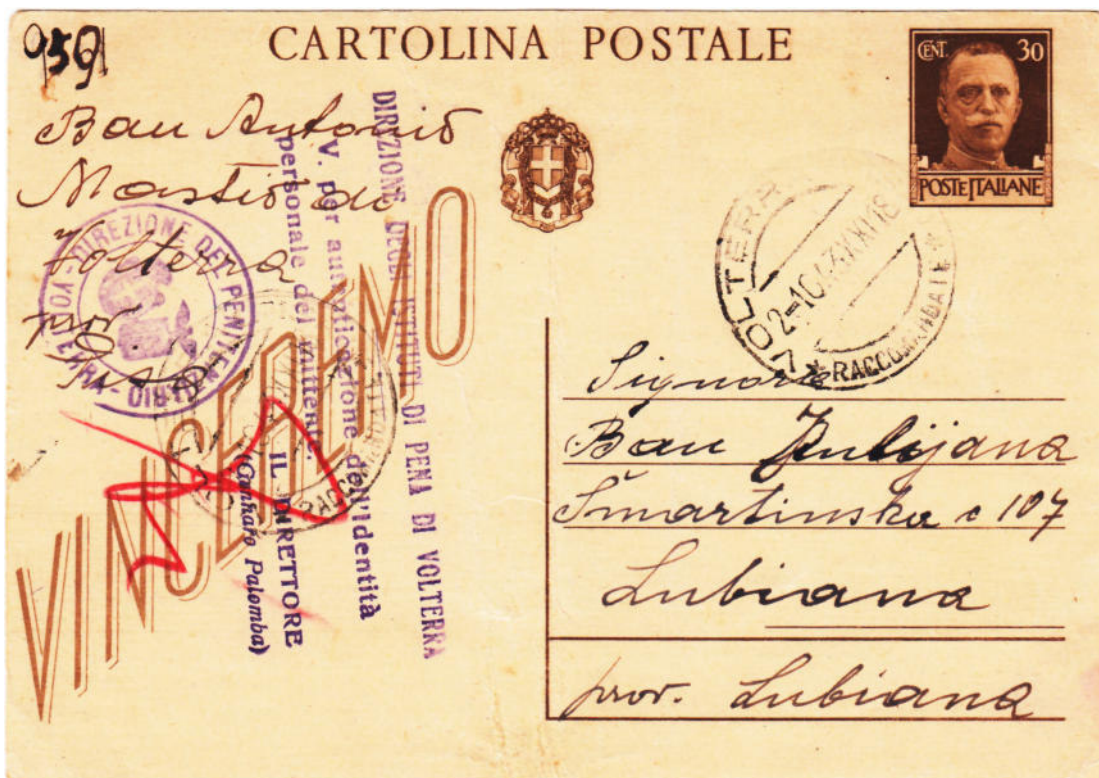 959
CARTOLINA POSTALE
CENT. 30
POSTE ITALIANE
Bau Antonio
Mastio di
Volterra
prov
Pisa
DIREZIONE DEI PENITENZIARI
VOLTERRA
DIREZIONE DEGLI ISTITUTI DI PENA DI VOLTERRA
V. per autenticazione dell'identità
personale del mittente
IL DIRETTORE
(Gennaro Palomba)
VINCEREMO
VOLTERRA
RACCOMANDATE
Signora
Bau Julijana
Šmartinska c 107
Lubiana
prov. Lubiana